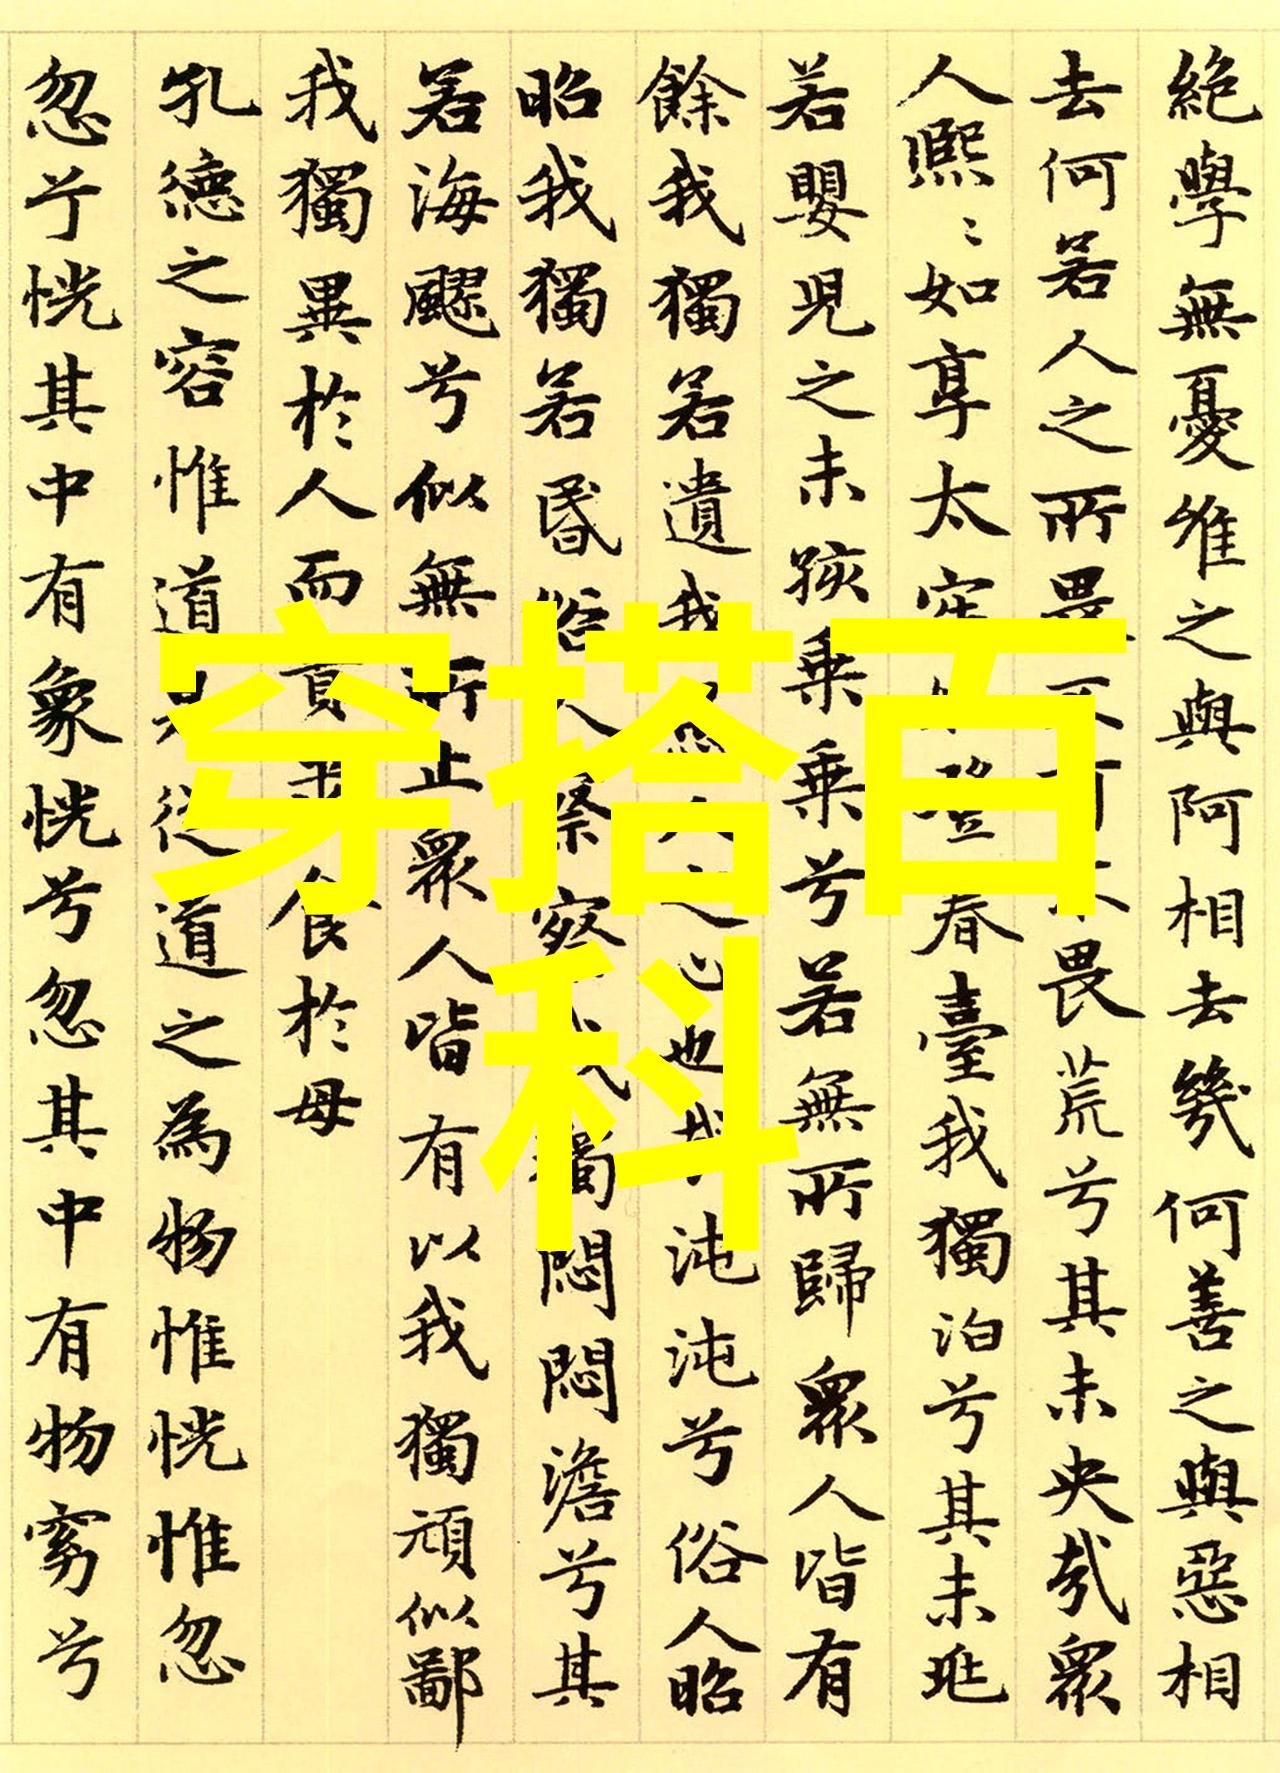 絶學無憂唯之與阿相去幾何善之與惡相
去何若人之所畏不可不畏荒兮其未央哉眾
人熙〻如享太牢如登春臺我獨泊兮其未兆
若嬰兒之未孩乘乘兮若無所歸眾人皆有
餘我獨若遺我愚人之心也哉沌沌兮俗人昭
昭我獨若昏俗人察察我獨悶悶澹兮其
若海飂兮似無所止眾人皆有以我獨頑似鄙
我獨異於人而貴求食於母
孔德之容惟道是從道之為物惟恍惟忽
忽兮恍其中有象恍兮忽其中有物窈兮
穿搭百
科